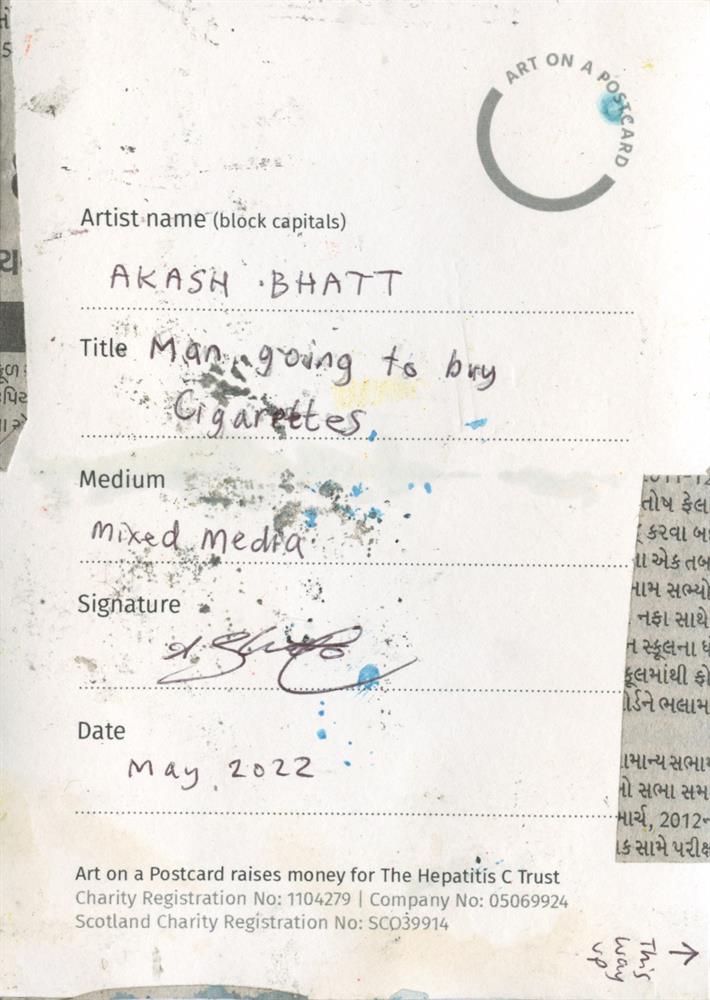 ART ON A POSTCARD
Artist name (block capitals)
AKASH BHATT
Title Man going to buy
Cigarettes
Medium
Mixed Media
Signature
Date
May 2022
Art on a Postcard raises money for The Hepatitis C Trust
Charity Registration No: 1104279 | Company No: 05069924
Scotland Charity Registration No: SCO39914
This
way
up
તોષ ફેલ
કરવા બ
એક તબ
સભ્યો
નફા સાથે
સ્કૂલના
ભલામ
સભા
માર્ચ, 2012
સામે પરીક્ષ